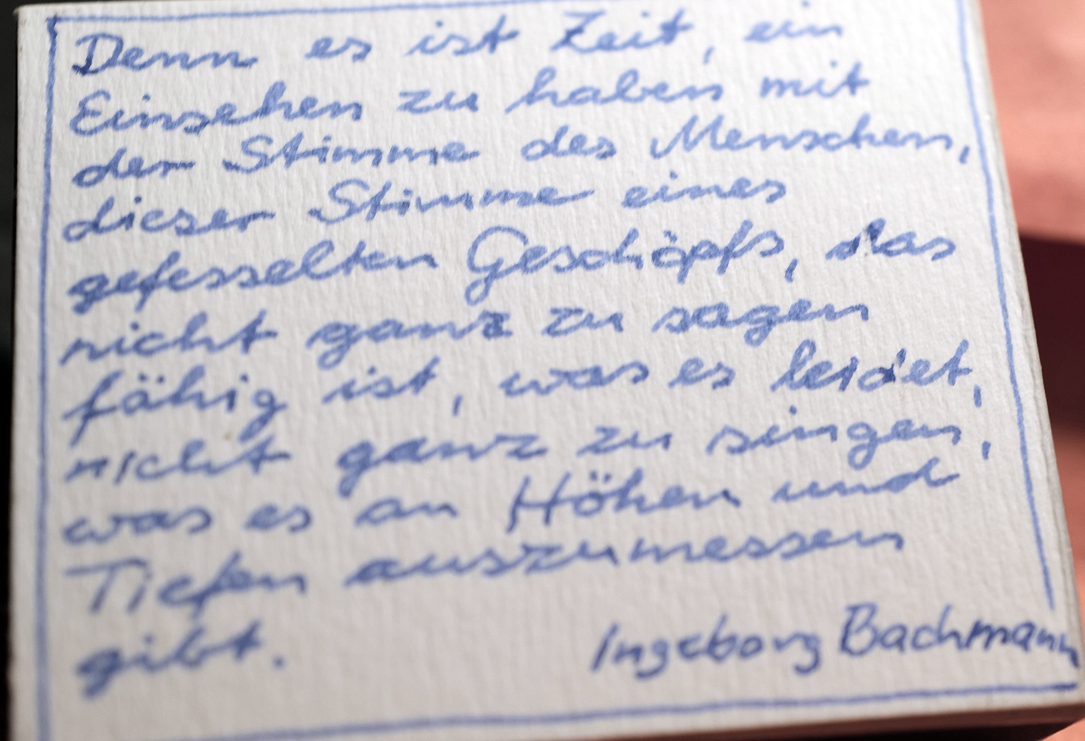 Denn es ist Zeit, ein
Einsehen zu haben mit
der Stimme des Menschen,
dieser Stimme eines
gefesselten Geschöpfs, das
nicht ganz zu sagen
fähig ist, was es leidet,
nicht ganz zu singen,
was es an Höhen und
Tiefen auszumessen
gibt.
Ingeborg Bachmann